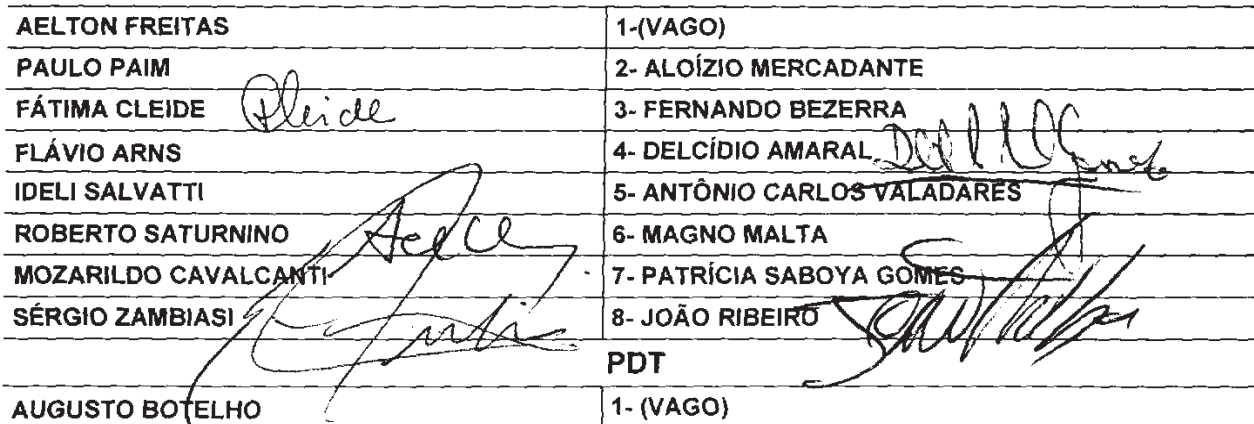 AELTON FREITAS 1-(VAGO)
PAULO PAIM 2- ALOÍZIO MERCADANTE
FÁTIMA CLEIDE Cleide 3- FERNANDO BEZERRA
FLÁVIO ARNS 4- DELCÍDIO AMARAL
IDELI SALVATTI 5- ANTÔNIO CARLOS VALADARES
ROBERTO SATURNINO 6- MAGNO MALTA
MOZARILDO CAVALCANTI 7- PATRÍCIA SABOYA GOMES
SÉRGIO ZAMBIASI 8- JOÃO RIBEIRO
PDT
AUGUSTO BOTELHO 1- (VAGO)